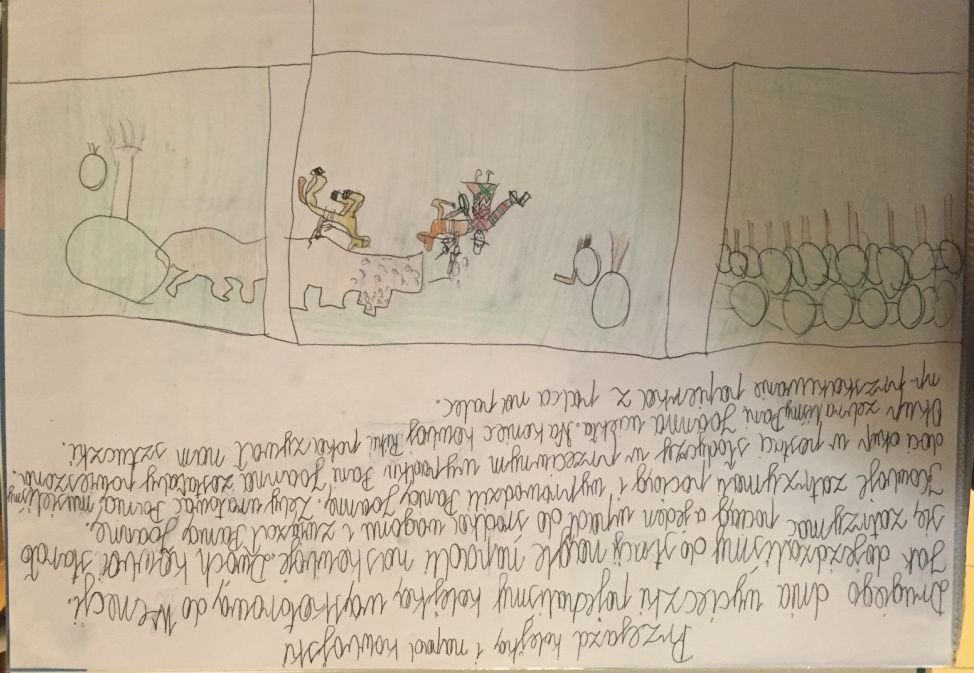 Przejazd kolejką i napad kowbojski
Drugiego dnia wycieczki pojechaliśmy kolejką wąskotorową do Wenecji.
Jak dojeżdżaliśmy do stacji nagle napadli nas kowboje. Dwóch kowboi starało
się zatrzymać pociąg a jeden wpadł do środka wagonu i związał Panią Joannę.
Kowboje zatrzymali pociąg i wyprowadzili Panią Joannę. Żeby uratować Panią musieliśmy
dać okup w postaci słodyczy w przeciwnym wypadku Pani Joanna zostałaby powieszona.
Okup zebraliśmy Pani Joanna uciekła. Na koniec kowboj pokazywał nam sztuczki.
np. przeskakiwanie papierka z palca na palec.